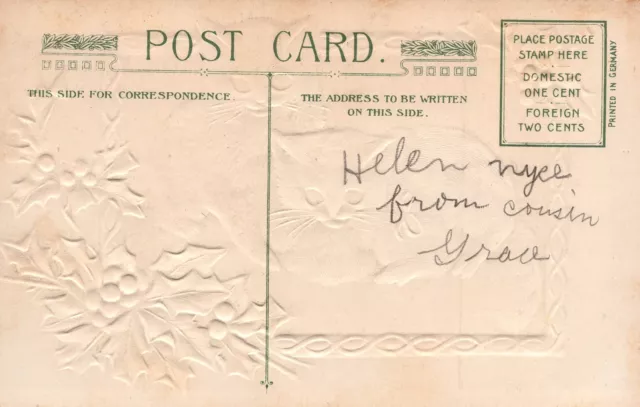 POST CARD.
THIS SIDE FOR CORRESPONDENCE.
THE ADDRESS TO BE WRITTEN
ON THIS SIDE.
PLACE POSTAGE
STAMP HERE
DOMESTIC
ONE CENT
FOREIGN
TWO CENTS
PRINTED IN GERMANY
Helen Nyce
from cousin
Grace